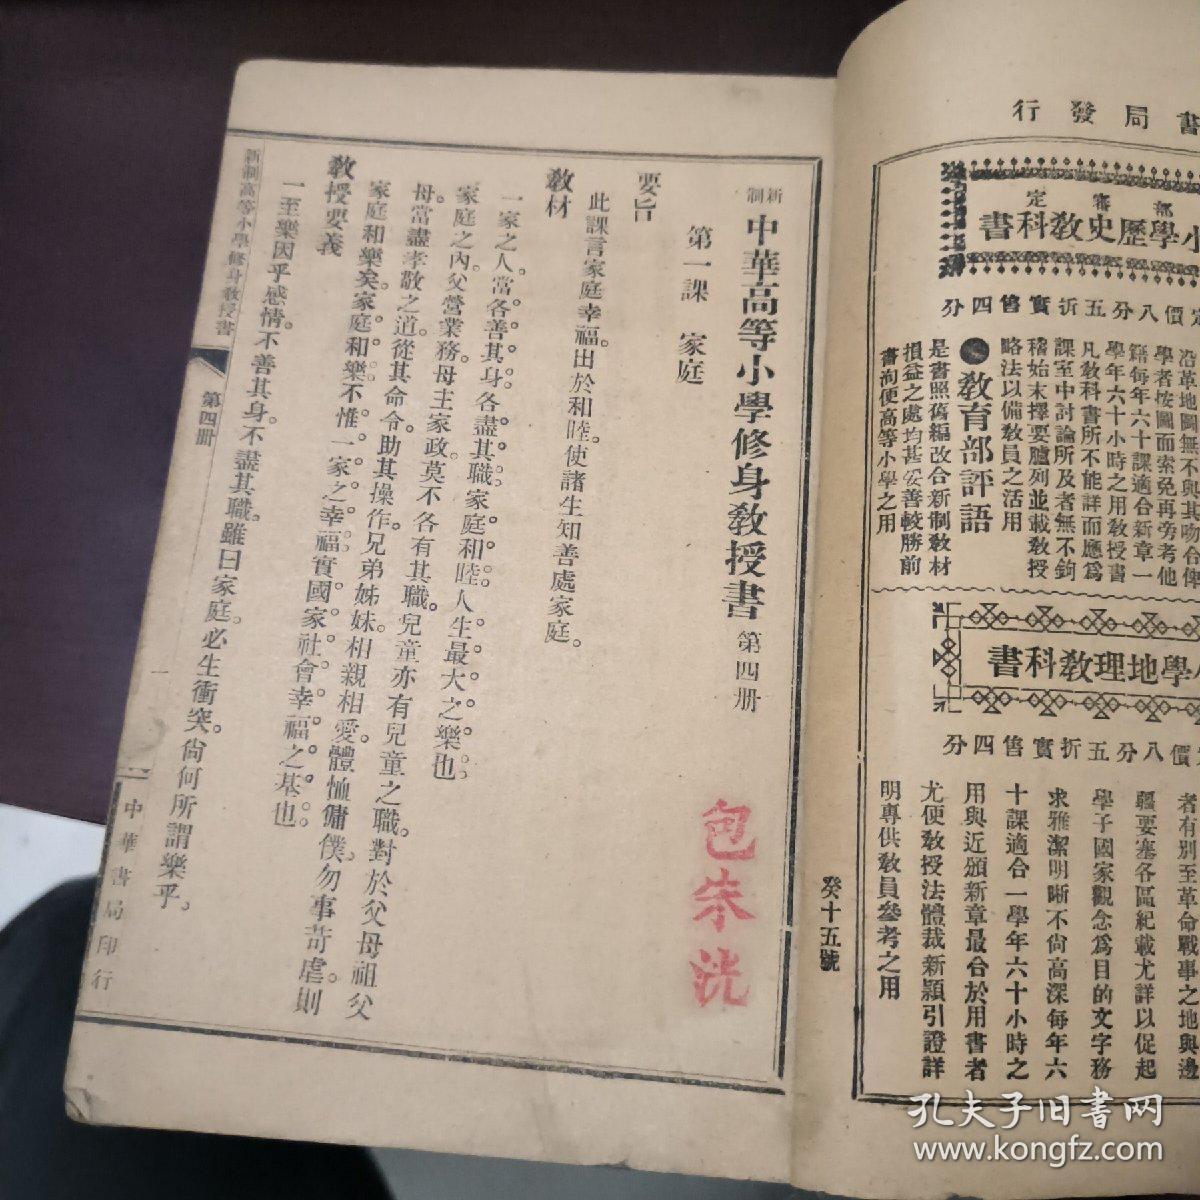 書局發行
部審定
小學歷史教科書
定價八分五折實售四分
沿革地圖無不與其吻合俾
學者按圖而索免再旁考他
籍每年六十課適合新章一
學年六十小時之用教授書
凡教科書所不能詳而應爲
課室中討論所及者無不鉤
稽始末擇要臚列並載教授
略法以備教員之活用
教育部評語
是書照舊編改合新制教材
損益之處均甚妥善較勝前
書洵便高等小學之用
小學地理教科書
定價八分五折實售四分
者有別至革命戰事之地與邊
疆要塞各區紀載尤詳以促起
學子國家觀念爲目的文字務
求雅潔明晰不尙高深每年六
十課適合一學年六十小時之
用與近頒新章最合於用書者
尤便教授法體裁新穎引證詳
明專供教員參考之用
癸十五號
新制中華高等小學修身教授書 第四册
第一課 家庭
要旨
此課言家庭幸福。出於和睦。使諸生知善處家庭。
教材
一家之人。當各善其身。各盡其職。家庭和睦。人生最大之樂也。
家庭之內。父營業務。母主家政。莫不各有其職。兒童亦有兒童之職。對於父母祖父
母。當盡孝敬之道。從其命令。助其操作。兄弟姊妹。相親相愛。體恤傭僕。勿事苛虐。則
家庭和樂矣。家庭和樂。不惟一家之幸福。實國家社會幸福之基也。
教授要義
一至樂因乎感情。不善其身。不盡其職。雖曰家庭。必生衝突。尙何所謂樂乎。
新制高等小學修身教授書
第四册
一
中華書局印行
包宋洸
孔夫子旧書网
www.kongfz.com